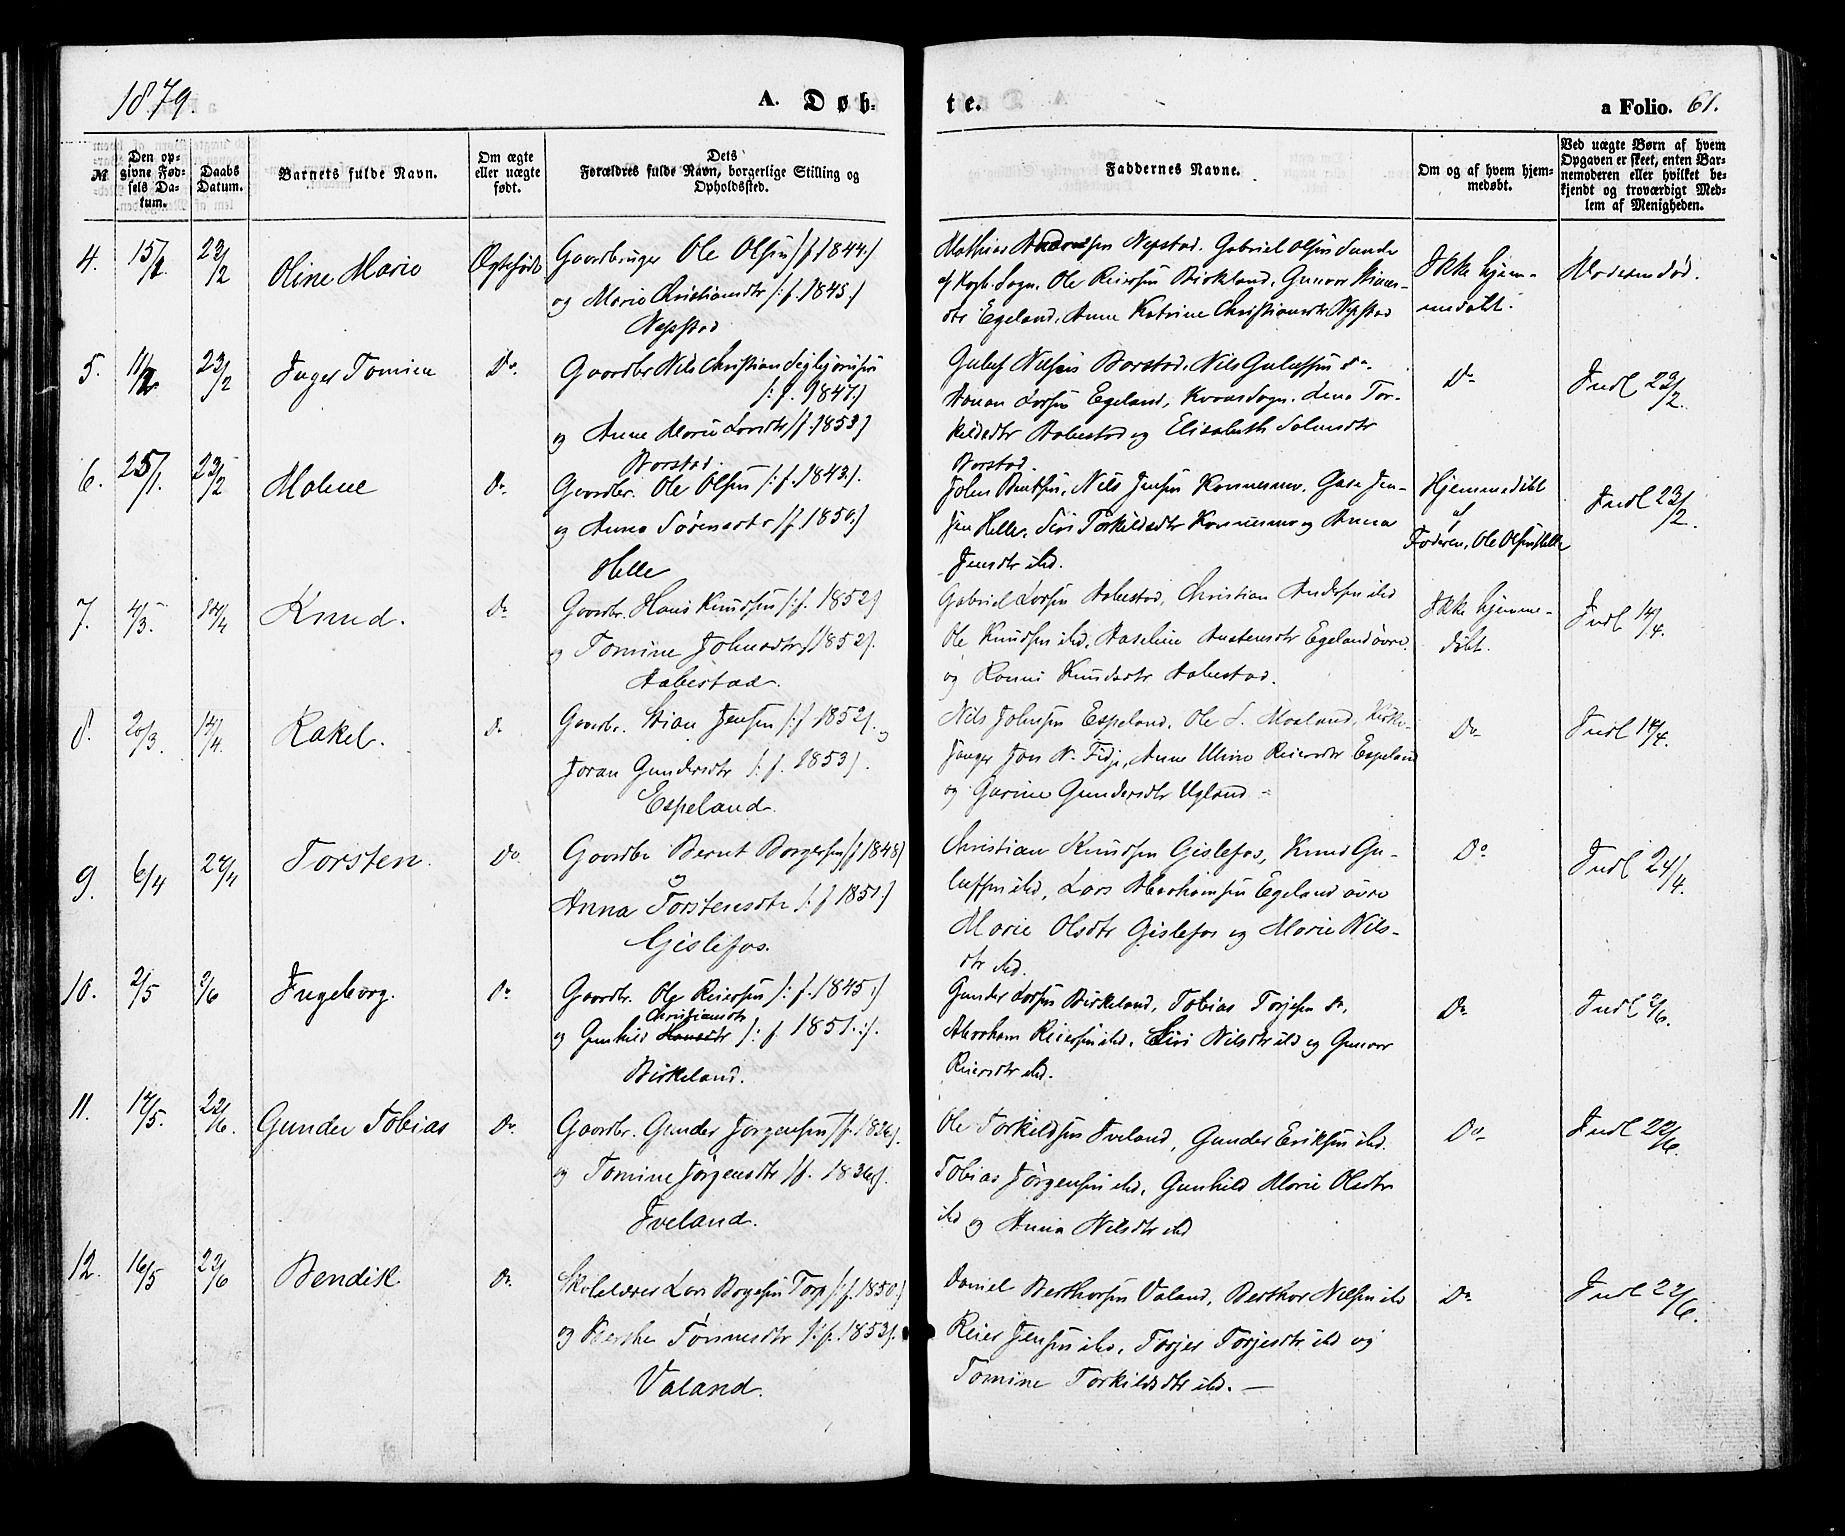 1879.
A. Døb-
te.
a Folio. 61.
№
Den op-
givne Fød-
sels Da-
tum.
Daabs
Datum.
Barnets fulde Navn.
Om ægte
eller uægte
født.
Dets
Forældres fulde Navn, borgerlige Stilling og
Opholdssted.
Faddernes Navne.
Om og af hvem hjem-
medøbt.
Ved uægte Børn af hvem
Opgaven er skeet, enten Bar-
nemoderen eller hvilket be-
kjendt og troværdigt Med-
lem af Menigheden.
4.
15/2
23/2
Oline Marie
Ægtefødt
Gaardbruger Ole Olsen /: f. 1844 :/
og Marie Christiansdtr /: f. 1845 :/
Nepstad
Mathias Andersen Nepstad. Gabriel Olsen Sunde
Sogn. Ole Reiersen Birkland, Gunvor
dtr Egeland, Anne Katrine Christiansdtr Nepstad
Ikke hjem-
medøbt.
Moderen død.
5.
11/2
23/2
Inger Tomine
Do
Gaardbr Nils Christian
/: f. 1847 :/
og Anne Marie Larsdtr /: f. 1853 :/
Borstad.
Guluf Nilsen Borstad. Nils Gulufsen do
Larsen Egeland, Kvaas Sogn. Lena Tor-
kildsdtr Aabestad og Elisabeth Salvesdtr
Borstad.
Do
Indl 23/2.
6.
25/1.
23/2
Malene
Do
Gaardbr. Ole Olsen /: f. 1843 :/
og Anna Sørensdtr /: f. 1850 :/
Helle
John Bentsen, Nils Jensen Konnesmo. Jen-
sen Helle, Siri Torkildsdtr Konnesmo og Anna
Jensdtr ibd.
Hjemmedøbt
af
Faderen, Ole Olsen Helle
Indl 23/2.
7.
4/3.
14/4
Knud.
Do
Gaardbr. Hans Knudsen /: f. 1852 :/
og Tomine Johnsdtr /: 1852 :/
Aabestad.
Gabriel Larsen Aabestad, Christian Andersen ibd
Ole Knudsen ibd, Aaseline Austensdtr Egeland øvre
og Ronni Knudsdtr Aabestad.
Ikke hjemme-
døbt.
Indl 14/4.
8.
20/3.
14/4.
Rakel.
Do
Gaardbr. Stian Jensen /: f. 1852 :/ og
Joran Gundersdtr /: f. 1853 :/.
Espeland.
Nils Johnsen Espeland, Ole S. Moland, Kirke-
sanger Jon N. Fidje, Anne Reiersdtr Espeland
og Gurine Gundersdtr Ugland -
Do
Indl 14/4.
9.
6/4
24/4
Torsten.
Do
Gaardbr Bernt Borgersen /: f. 1848 :/
og
Anna Torstensdtr /: f. 1851 :/
Gislefos.
Christian Knudsen Gislefos, Knud Gu-
lufsen ibd, Lars Abrahamsen Egeland øvre
Marie Olsdtr Gislefos og Marie Nils-
dtr ibd.
Do
Indl 24/4.
10.
2/5
2/6
Ingeborg.
Do
Gaardbr. Ole Reiersen /: f. 1845 :/
Christiansdtr
og Gunhild Hansdtr /: f. 1851 :/.
Birkeland.
Gunder Larsen Birkeland, Tobias Torjesen do,
Abraham Reiersen ibd, Siri Nilsdtr ibd og Gunvor
Reiersdtr ibd.
Do
Indl 2/6.
11.
14/5.
22/6.
Gunder Tobias
Do
Gaardbr. Gunder Jørgensen /: f. 1836 :/.
og Tomine Jørgensdtr /: f. 1836 :/.
Iveland.
Ole Torkildsen Iveland, Gunder Eriksen ibd.
Tobias Jørgensen ibd, Gunhild Marie Olsdtr
ibd og Anna Nilsdtr ibd
Do
Indl 22/6.
12.
16/5
22/6
Bendik
Do
Skolelærer Lars Torp /: f. 1850 :/
og Berthe Tønnesdtr /: f. 1853 :/.
Valand.
Daniel Berthorsen Valand, Berthor Nilsen ibd
Reier Jensen ibd, Torjer Torjesdtr ibd og
Tomine Torkildsdtr ibd. —
Do
Indl 22/6.